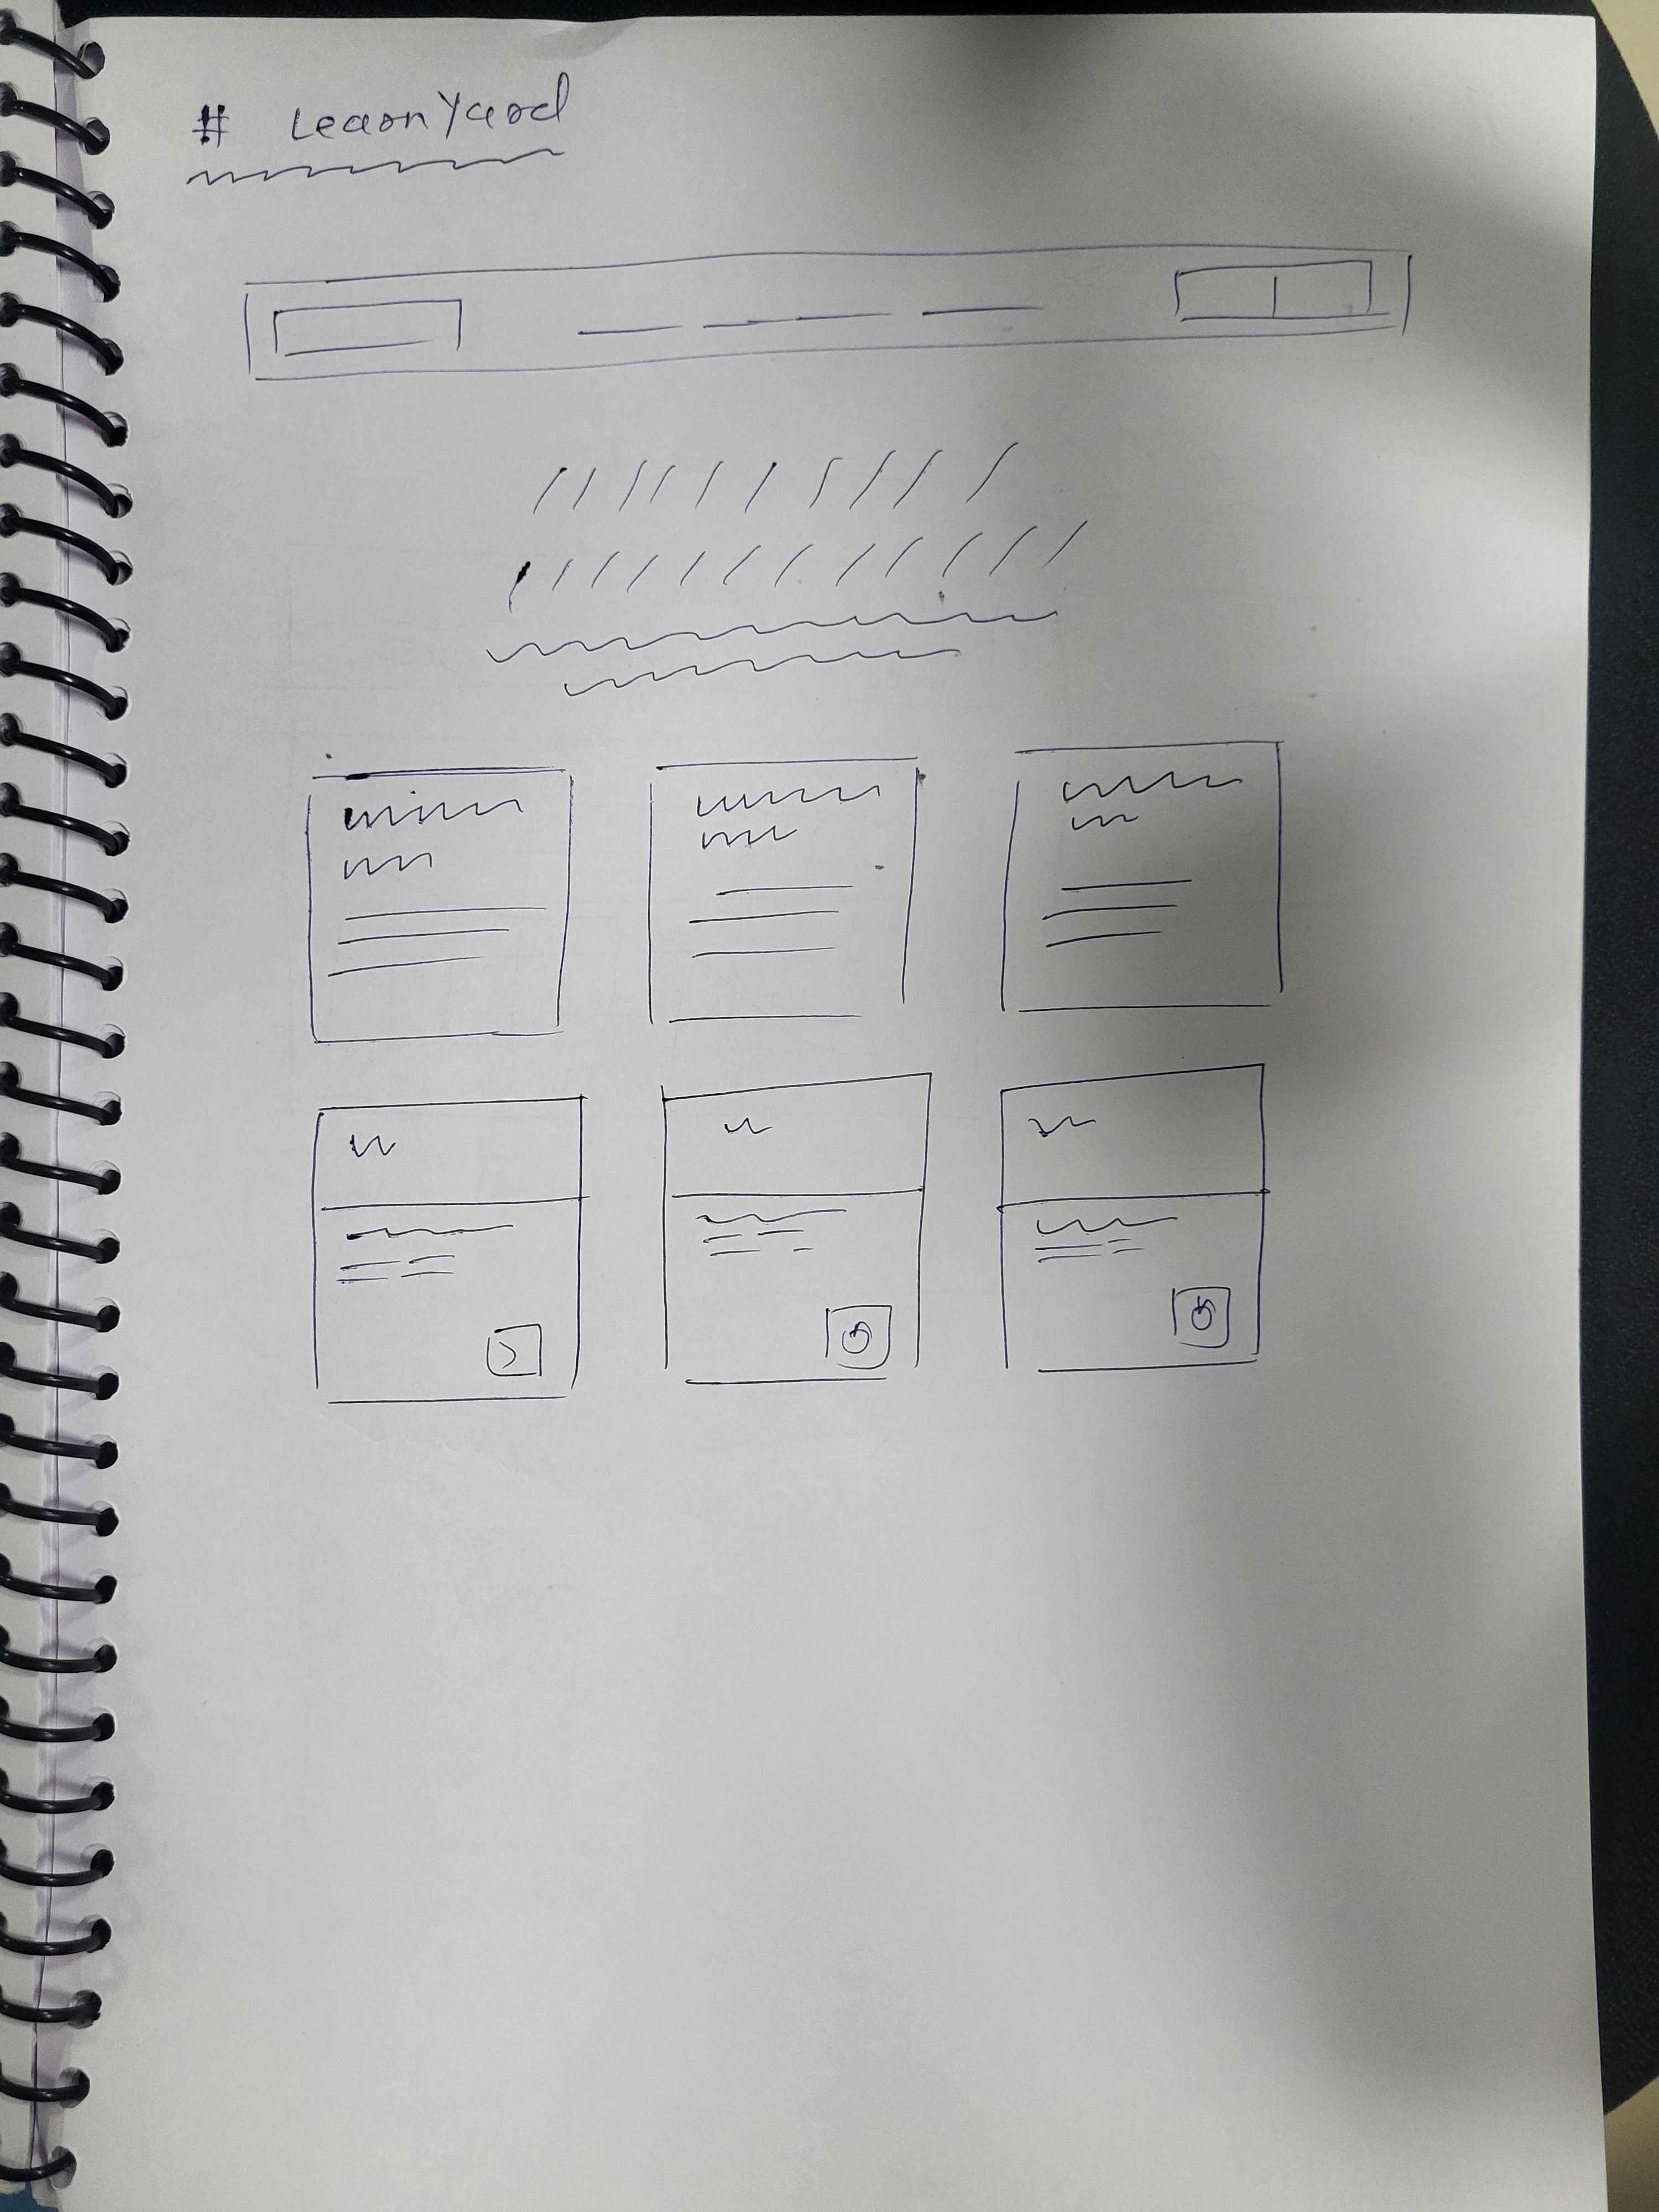 # LearnYard